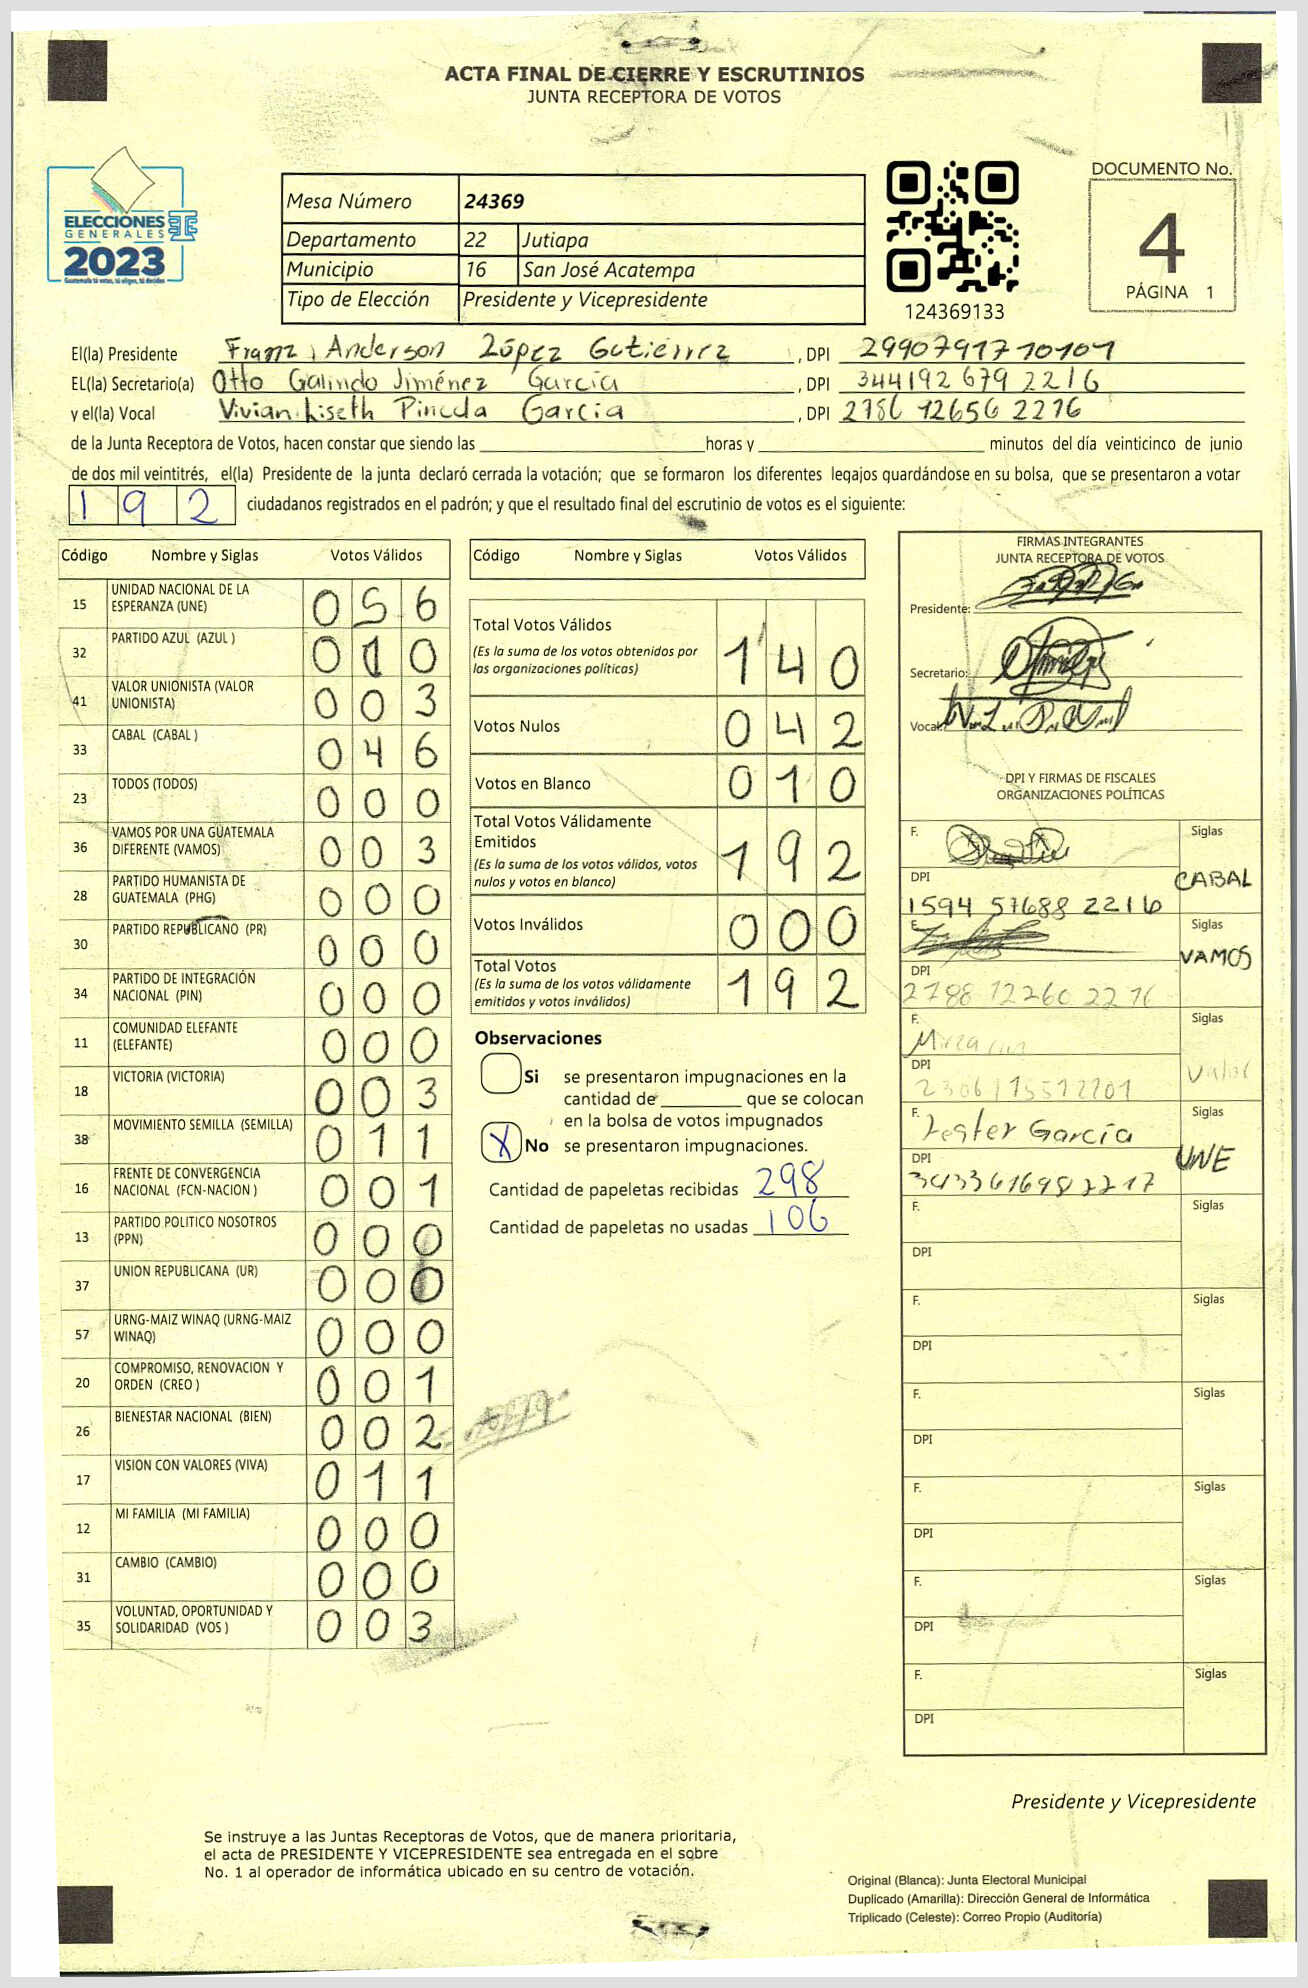 ACTA FINAL DE CIERRE Y ESCRUTINIOS
JUNTA RECEPTORA DE VOTOS
ELECCIONES
GENERALES
2023
Guatemala tú votas, tú eliges, tú decides
Mesa Número 24369
Departamento 22 Jutiapa
Municipio 16 San José Acatempa
Tipo de Elección Presidente y Vicepresidente
124369133
DOCUMENTO No.
4
PÁGINA 1
El(la) Presidente Franz Anderson López Gutiérrez , DPI 2990791770101
EL(la) Secretario(a) Otto Galindo Jiménez García , DPI 344192 679 2216
y el(la) Vocal Vivian Liseth Pineda García , DPI 2786 12656 2216
de la Junta Receptora de Votos, hacen constar que siendo las horas y minutos del día veinticinco de junio
de dos mil veintitrés, el(la) Presidente de la junta declaró cerrada la votación; que se formaron los diferentes legajos guardándose en su bolsa, que se presentaron a votar
192 ciudadanos registrados en el padrón; y que el resultado final del escrutinio de votos es el siguiente:
Código Nombre y Siglas Votos Válidos
15 UNIDAD NACIONAL DE LA ESPERANZA (UNE) 056
32 PARTIDO AZUL (AZUL ) 010
41 VALOR UNIONISTA (VALOR UNIONISTA) 003
33 CABAL (CABAL ) 046
23 TODOS (TODOS) 000
36 VAMOS POR UNA GUATEMALA DIFERENTE (VAMOS) 003
28 PARTIDO HUMANISTA DE GUATEMALA (PHG) 000
30 PARTIDO REPUBLICANO (PR) 000
34 PARTIDO DE INTEGRACIÓN NACIONAL (PIN) 000
11 COMUNIDAD ELEFANTE (ELEFANTE) 000
18 VICTORIA (VICTORIA) 003
38 MOVIMIENTO SEMILLA (SEMILLA) 011
16 FRENTE DE CONVERGENCIA NACIONAL (FCN-NACION ) 001
13 PARTIDO POLITICO NOSOTROS (PPN) 000
37 UNION REPUBLICANA (UR) 000
57 URNG-MAIZ WINAQ (URNG-MAIZ WINAQ) 000
20 COMPROMISO, RENOVACION Y ORDEN (CREO ) 001
26 BIENESTAR NACIONAL (BIEN) 002
17 VISION CON VALORES (VIVA) 011
12 MI FAMILIA (MI FAMILIA) 000
31 CAMBIO (CAMBIO) 000
35 VOLUNTAD, OPORTUNIDAD Y SOLIDARIDAD (VOS ) 003
Código Nombre y Siglas Votos Válidos
Total Votos Válidos 140
(Es la suma de los votos obtenidos por
las organizaciones políticas)
Votos Nulos 042
Votos en Blanco 010
Total Votos Válidamente
Emitidos 192
(Es la suma de los votos válidos, votos
nulos y votos en blanco)
Votos Inválidos 000
Total Votos 192
(Es la suma de los votos válidamente
emitidos y votos inválidos)
Observaciones
Si se presentaron impugnaciones en la
cantidad de que se colocan
en la bolsa de votos impugnados
X No se presentaron impugnaciones.
Cantidad de papeletas recibidas 298
Cantidad de papeletas no usadas 106
FIRMAS INTEGRANTES
JUNTA RECEPTORA DE VOTOS
Presidente:
Secretario:
Vocal:
DPI Y FIRMAS DE FISCALES
ORGANIZACIONES POLÍTICAS
F. Siglas
DPI CABAL
1594 57688 2216
F. Siglas
VAMOS
DPI
2788 12260 2216
F. Siglas
Mirza
DPI Valor
F. Siglas
Lester García
DPI UNE
3433616982217
F. Siglas
DPI
F. Siglas
DPI
F. Siglas
DPI
F. Siglas
DPI
F. Siglas
DPI
F. Siglas
DPI
Presidente y Vicepresidente
Se instruye a las Juntas Receptoras de Votos, que de manera prioritaria,
el acta de PRESIDENTE Y VICEPRESIDENTE sea entregada en el sobre
No. 1 al operador de informática ubicado en su centro de votación.
Original (Blanca): Junta Electoral Municipal
Duplicado (Amarilla): Dirección General de Informática
Triplicado (Celeste): Correo Propio (Auditoría)